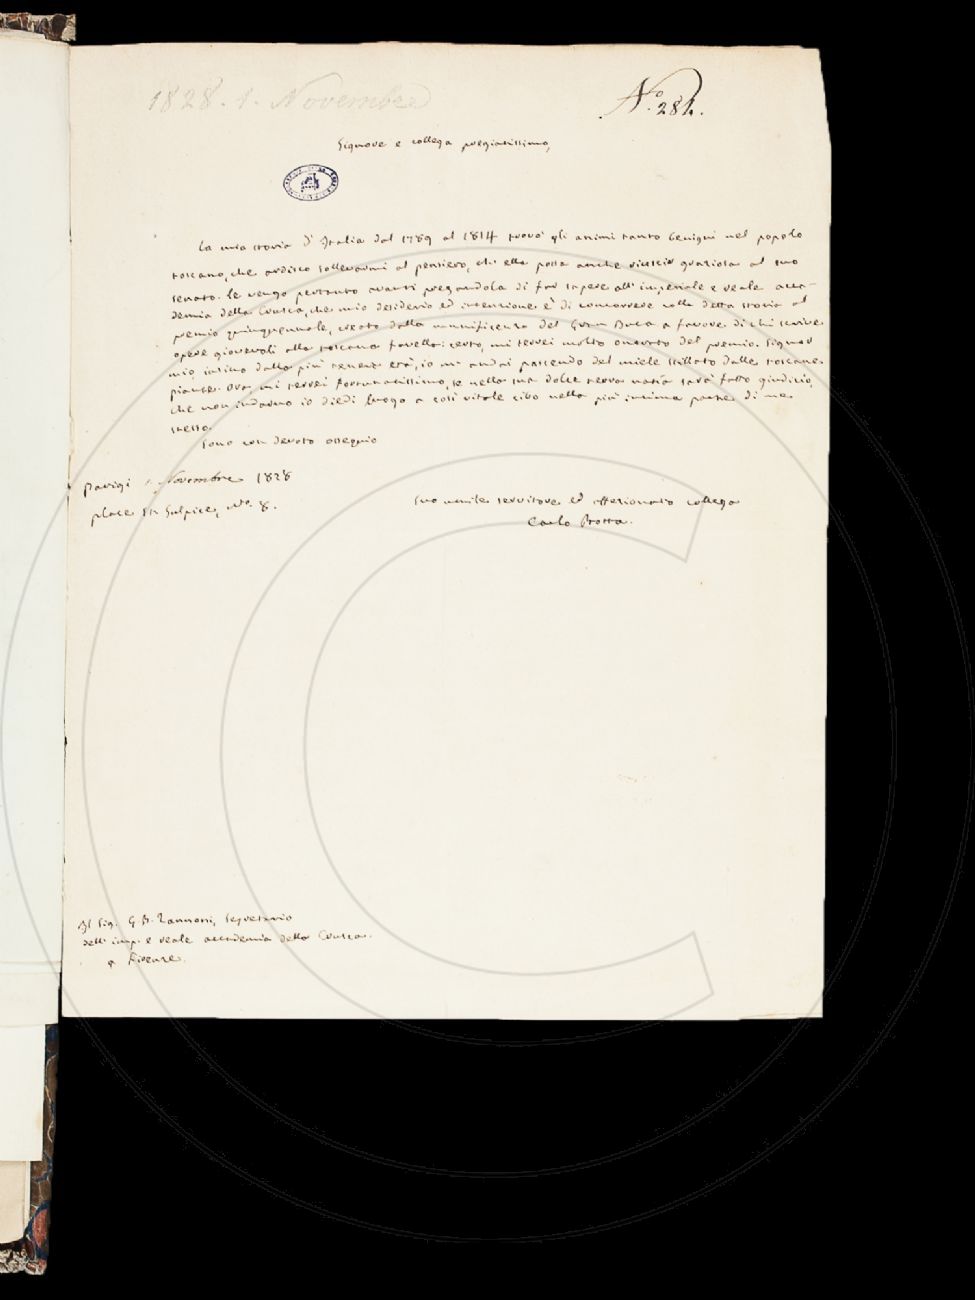 1828. 1. Novembre
N.º 284.
Signore e collega pregiatissimo,
La mia storia d'Italia dal 1789 al 1814 trovò gli animi tanto benigni nel popolo
toscano, che ardisco sollevarmi al pensiero, ch'ella possa anche riuscir graziosa al suo
senato. Le vengo pertanto avanti pregandola di far sapere all'imperiale e reale acca-
demia della Crusca, che mio desiderio ed intenzione è di concorrere colla detta storia al
premio quinquennale, creato dalla munificenza del Gran Duca a favore di chi scrive
opere giovevoli alla toscana favella: certo, mi terrei molto onorato del premio. Signor
mio, insino dalla più tenera età, io m'andai pascendo del miele stillato dalle toscane
piante. Ora mi terrei fortunatissimo, se nella sua dolce terra natìa sarà fatto giudizio,
che non indarno io diedi luogo a così vitale cibo nella più intima parte di me
stesso.
Sono con devoto ossequio
Parigi 1 Novembre 1828
place St. Sulpice, Nº. 8.
Suo umile servitore ed affezionato collega
Carlo Botta.
Al Sig. G. B. Zannoni, Segretario
dell'imp. e reale accademia della Crusca.
a Firenze.